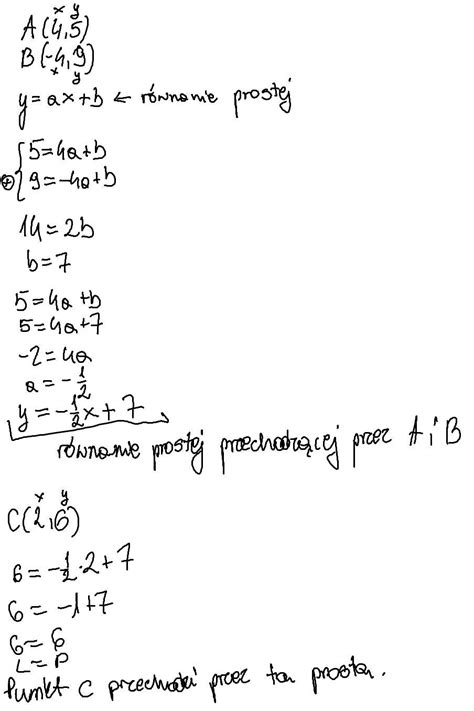 x y
A(4,5)
B(-4,9)
x y
y=ax+b ← równanie prostej
5=4a+b
⊕ 9=-4a+b
14=2b
b=7
5=4a+b
5=4a+7
-2=4a
a=-1/2
y=-1/2x+7
równanie prostej przechodzącej przez A i B
x y
C(2,6)
6=-1/2·2+7
6=-1+7
6=6
L=P
Punkt C przechodzi przez tą prostą.